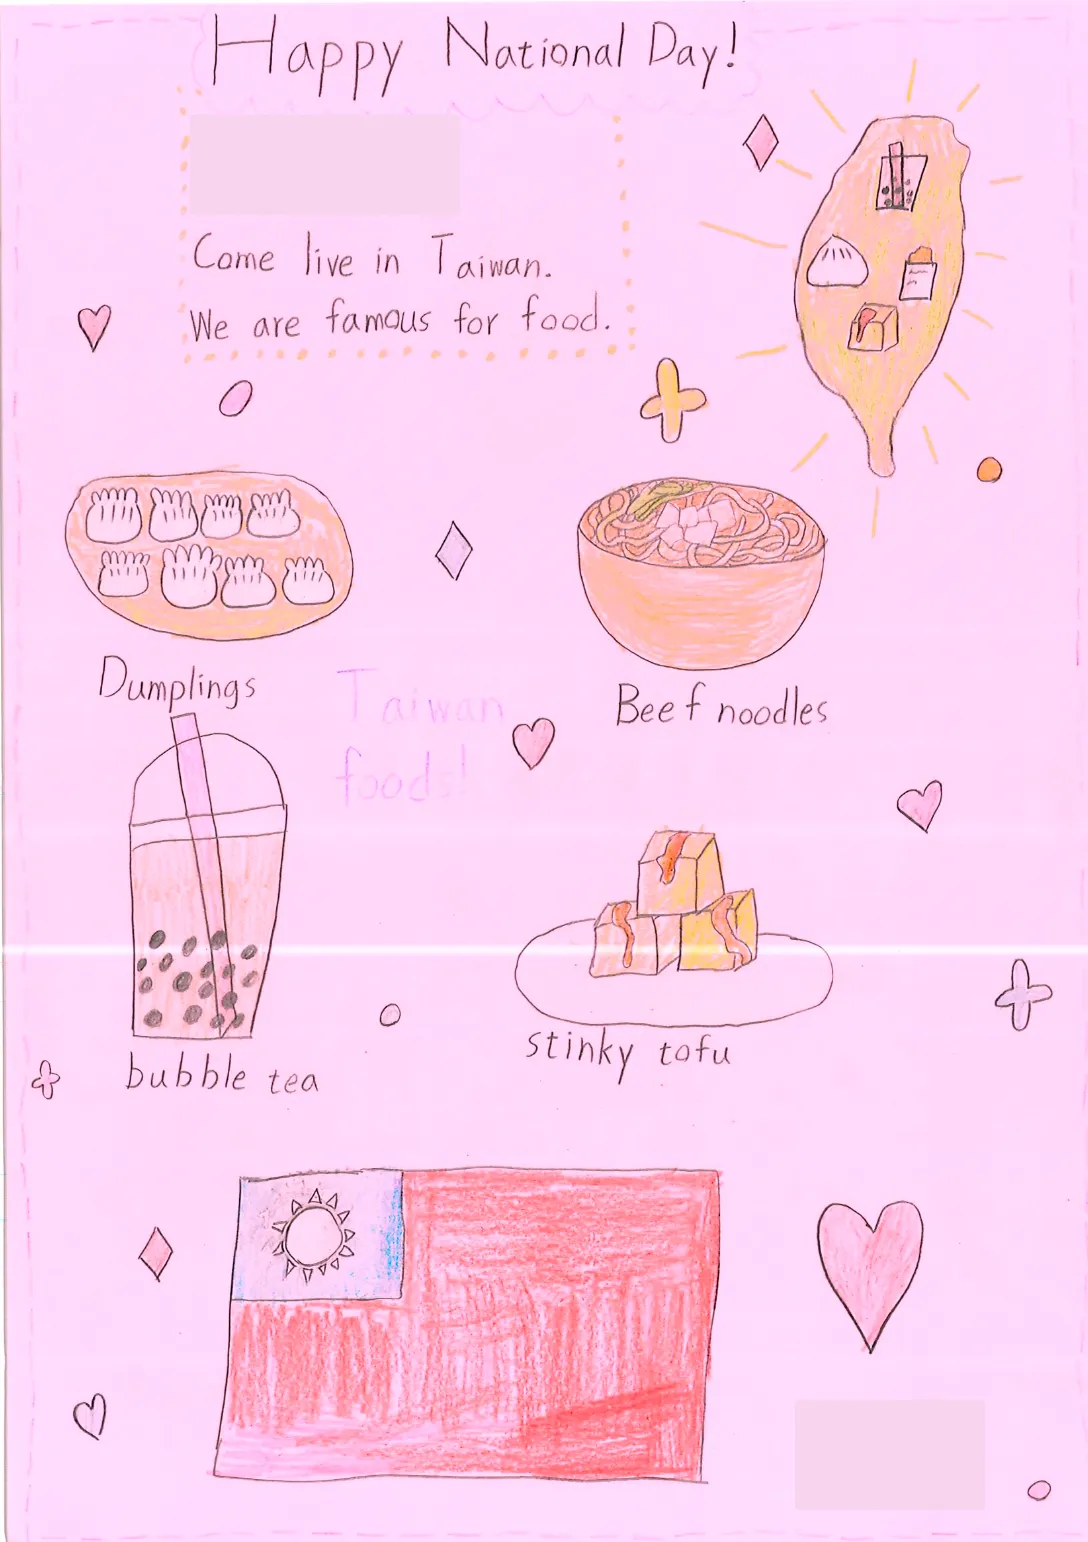 Happy National Day!
Come live in Taiwan.
We are famous for food.
Dumplings
Beef noodles
Taiwan
foods!
bubble tea
stinky tofu